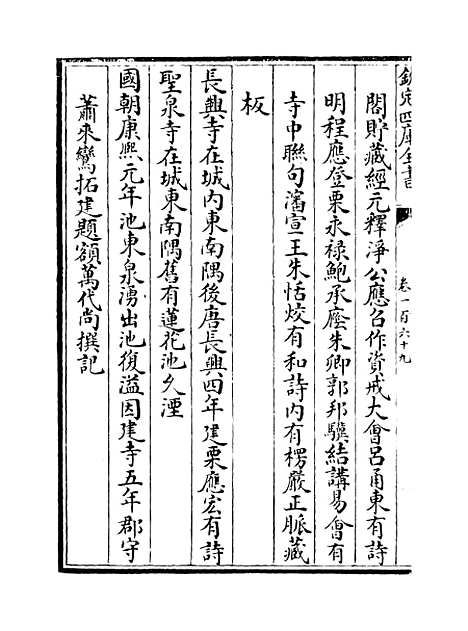 欽定四庫全書
卷一百六十九
閣貯藏經元釋淨公應召作資戒大會呂甬東有詩
明程應登栗永祿鮑承廕朱卿郭邦驥結講易會有
寺中聯句瀋宣王朱恬烄有和詩内有楞嚴正脈藏
板
長興寺在城内東南隅後唐長興四年建栗應宏有詩
聖泉寺在城東南隅舊有蓮花池久湮
國朝康熙元年池東泉湧出池復溢因建寺五年郡守
蕭來鸞拓建題額萬代尚撰記